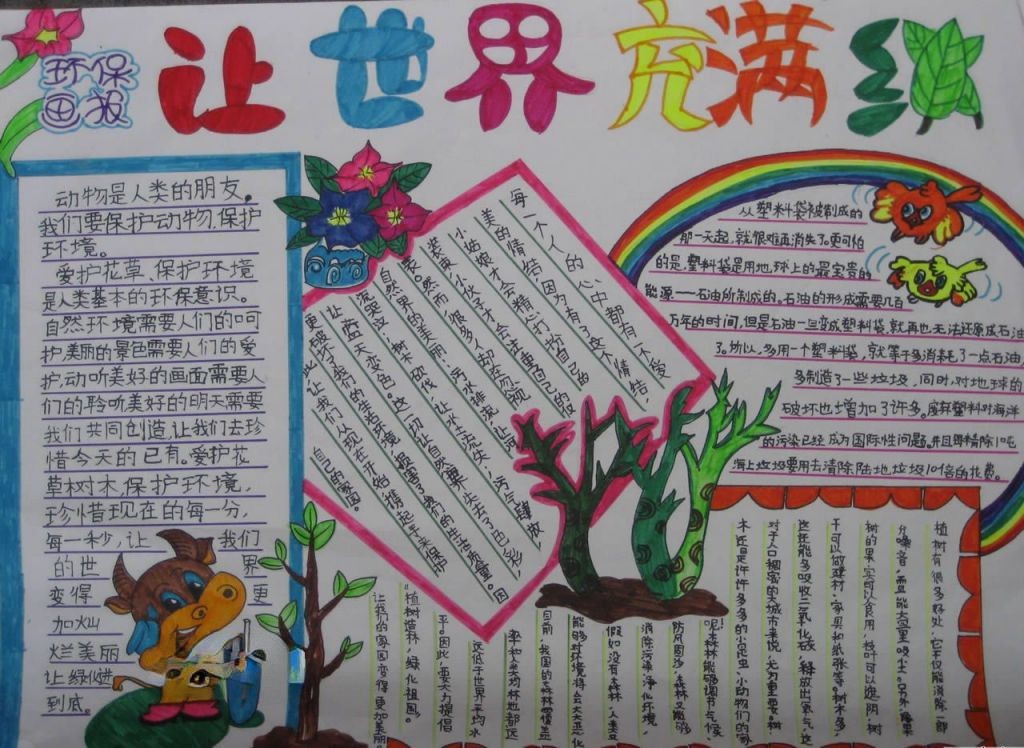 环保
画报
让世界充满绿
动物是人类的朋友。
我们要保护动物,保护
环境。
爱护花草、保护环境
是人类基本的环保意识。
自然环境需要人们的呵
护,美丽的景色需要人们的爱
护,动听美好的画面需要人
们的聆听美好的明天需要
我们共同创造,让我们去珍
惜今天的已有。爱护花
草树木,保护环境,
珍惜现在的每一分,
每一秒,让我们
的世界
变得更
加灿
烂美丽
让绿化进行
到底。
每一个人的心中都有一个爱
美的情结,因为有了这个情结,
小姑娘才会精心打扮自己的
然而,很多人却在忽视
自然界的美丽:污水排放,让河
流哭泣;树木砍伐,让水土流失;污气释放,
让蓝天变色。这一切让自然界失去了色彩,
更破坏了我们的生活环境,损害了我们的生活质量。因
此,让我们从现在开始,携起手来保护
自己的家园。
从塑料袋被制成的
那一天起,就很难再消失了。更可怕
的是,塑料袋是用地球上的最宝贵的
能源——石油所制成的。石油的形成需要几百
万年的时间,但是石油一旦变成塑料袋,就再也无法还原成石油
了。所以,多用一个塑料袋,就等于多消耗了一点石油
多制造了一些垃圾,同时,对地球的
破坏也增加了许多。废弃塑料对海洋
的污染已经成为国际性问题。并且每清除1吨
海上垃圾要用去清除陆地垃圾10倍的花费。
植树有很多好处,它不仅能消除一部
分噪音,而且能大量吸尘。另外,苹果
树的果实可以食用,枝叶可以遮阴,树
干可以做建材、家具和纸张等。树木多
还能多吸收二氧化碳,释放出氧气,这
对于人口稠密的大城市来说,尤为重要。树
木还是许许多多的小昆虫、小动物们的家
呢!森林能够调节气候,
防风固沙,森林又能够
消除污染,净化环境,
假如没有森林,人类
能够对环境将会大大恶化
目前,我国的森林覆盖
率和人类均林地都远
远低于世界平均水
平。因此,要大力提倡
“植树造林,绿化祖国”。
让我们的家园变得更加美丽